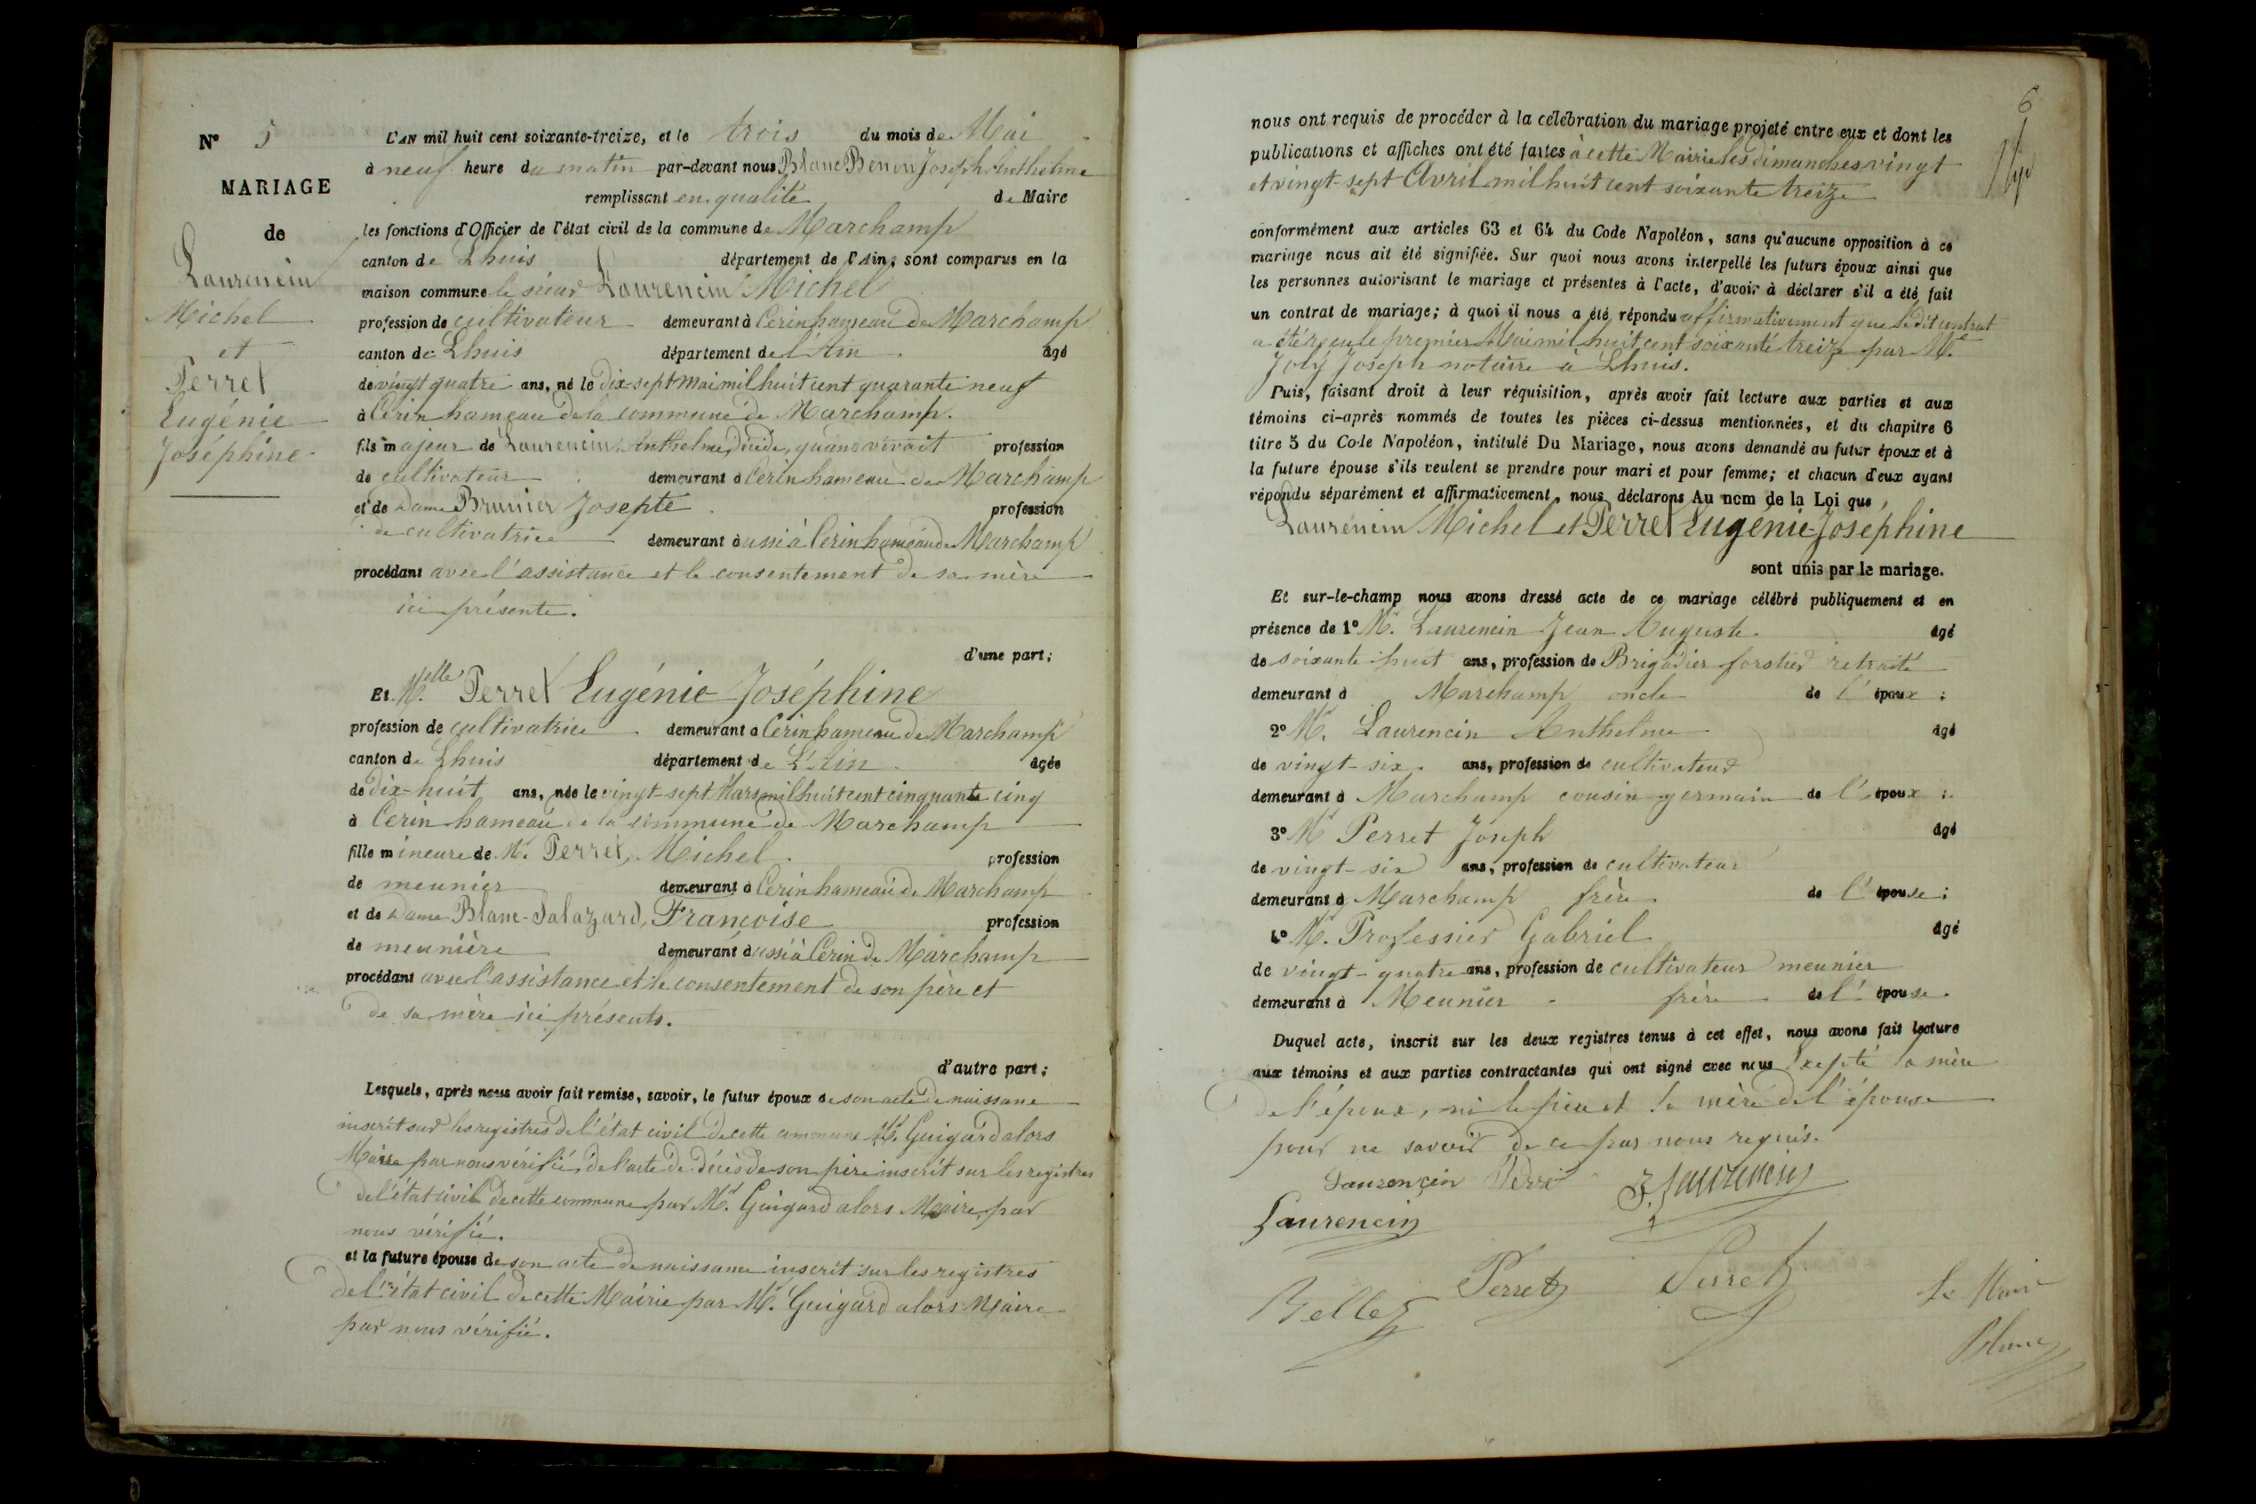 N° 5
MARIAGE
de
Laurencin
Michel
et
Perret
Eugénie
Joséphine
L'AN mil huit cent soixante-treize, et le trois du mois de Mai
à neuf heure du matin par-devant nous Blanc Benon Joseph Anthelme
remplissant en qualité de Maire
les fonctions d'Officier de l'état civil de la commune de Marchamp
canton de Lhuis département de l'Ain, sont comparus en la
maison commune le sieur Laurencin Michel
profession de cultivateur demeurant à Cerin hameau de Marchamp
canton de Lhuis département de l'Ain âgé
de vingt quatre ans, né le Dix-sept mai mil huit cent quarante neuf
à Cerin hameau de la commune de Marchamp.
fils majeur de Laurencin Anthelme, décédé, quand vivait profession
de cultivateur demeurant à Cerin hameau de Marchamp
et de Dame Brunier Josepte profession
de cultivatrice demeurant aussi à Cerin hameau de Marchamp
procédant avec l'assistance et le consentement de sa mère
ici présente.
d'une part;
Et Melle Perret Eugénie Joséphine
profession de cultivatrice demeurant à Cerin hameau de Marchamp
canton de Lhuis département de L'Ain âgée
de Dix-huit ans, née le vingt-sept Mars mil huit cent cinquante cinq
à Cerin hameau de la commune de Marchamp
fille mineure de Mr. Perret, Michel profession
de meunier demeurant à Cerin hameau de Marchamp
et de Dame Blanc-Salazard, Francoise profession
de meunière demeurant aussi à Cerin de Marchamp
procédant avec l'assistance et le consentement de son père et
de sa mère ici présents.
d'autre part;
Lesquels, après nous avoir fait remise, savoir, le futur époux de son acte de naissance
inscrit sur les registres de l'état civil de cette commune Mr. Guigard alors
Maire par nous vérifié, de l'acte de décès de son père inscrit sur les registres
de l'état civil de cette commune par Mr. Guigard alors Maire, par
nous vérifié.
et la future épouse de son acte de naissance inscrit sur les registres
de l'état civil de cette Mairie par Mr. Guigard alors Maire
par nous vérifié.
6
nous ont requis de procéder à la célébration du mariage projeté entre eux et dont les
publications et affiches ont été faites à cette Mairie les dimanches vingt
et vingt-sept Avril mil huit cent soixante treize
conformément aux articles 63 et 64 du Code Napoléon, sans qu'aucune opposition à ce
mariage nous ait été signifiée. Sur quoi nous avons interpellé les futurs époux ainsi que
les personnes autorisant le mariage et présentes à l'acte, d'avoir à déclarer s'il a été fait
un contrat de mariage; à quoi il nous a été répondu affirmativement que ledit contrat
a été reçu le premier Mai mil huit cent soixante treize par Me
Joly Joseph notaire à Lhuis.
Puis, faisant droit à leur réquisition, après avoir fait lecture aux parties et aux
témoins ci-après nommés de toutes les pièces ci-dessus mentionnées, et du chapitre 6
titre 5 du Code Napoléon, intitulé Du Mariage, nous avons demandé au futur époux et à
la future épouse s'ils veulent se prendre pour mari et pour femme; et chacun d'eux ayant
répondu séparément et affirmativement, nous déclarons Au nom de la Loi que
Laurencin Michel et Perret Eugénie Joséphine
sont unis par le mariage.
Et sur-le-champ nous avons dressé acte de ce mariage célébré publiquement et en
présence de 1° Mr. Laurencin Jean Auguste âgé
de soixante-huit ans, profession de Brigadier forstier retraité
demeurant à Marchamp oncle de l'époux;
2° Mr. Laurencin Anthelme âgé
de vingt-six ans, profession de cultivateur
demeurant à Marchamp cousin germain de l'époux;
3° Mr Perret Joseph âgé
de vingt-six ans, profession de cultivateur
demeurant à Marchamp frère de l'épouse;
4° M. Gabriel âgé
de vingt-quatre ans, profession de cultivateur meunier
demeurant à Meunier frère de l'épouse.
Duquel acte, inscrit sur les deux registres tenus à cet effet, nous avons fait lecture
aux témoins et aux parties contractantes qui ont signé avec nous Excepté la mère
de l'époux, ni le père et la mère de l'épouse
pour ne savoir de ce par nous requis.
Laurencin J. Laurencin
Laurencin
Perret Perret
Le Maire
Blanc